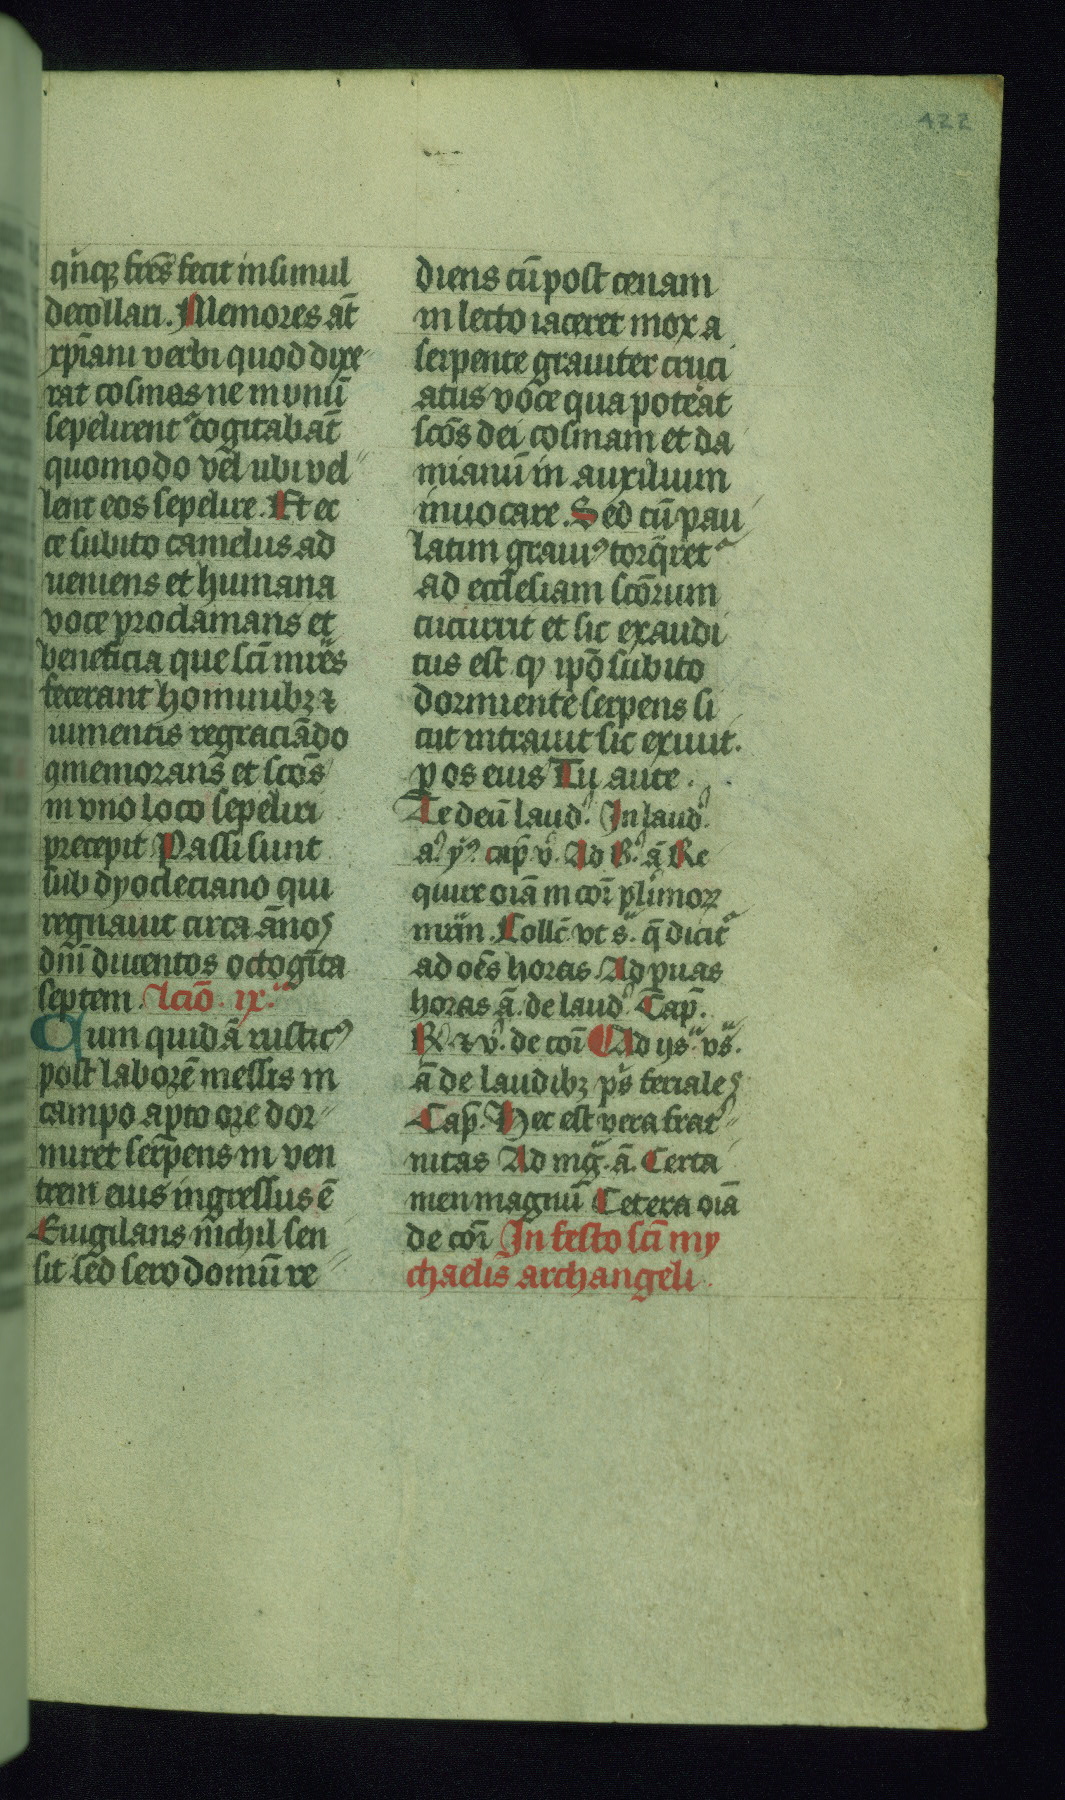 422
qͥnqꝫ fres̄ fecit insimul
decollari. Memores at̄
xp̄iani verbi quod dixe
rat cosmas ne in vnū
sepelirent᷑ cogitabāt
quomodo vel̄ ubi vel
lent eos sepelire. Et ec
ce subito camelus ad
ueniens et humana
voce proclamans et
beneficia que sci̅ mr̅es
fecerant hominibꝫ ⁊
iumentis regraciādo
ꝯmemorans et scōs
in vno loco sepeliri
precepit Passi sunt
sub dyocleciano qui
regnauit circa ānos
dn̄i ducentos octogīta
septem. lcīo. ix.ᵃ
Cum quidā rusticꝰ
post laborē messis in
campo apto ore dor
miret serpens in ven
trem eius ingressus ē
Euigilans nichil sen
sit sed sero domū re
diens cū post cenam
in lecto iaceret mox a
serpente grauiter cruci
atus voce qua poterat
scōs dei cosmam et da
mianū in auxilium
inuocare. Sed cū pau
latim grauiꝰ torqͥret᷑
ad ecclesiam scōrum
cucurrit et sic exaudi
tus est ꝙ ipō subito
dormiente serpens si
cut intrauit sic exiuit.
ꝑ os eius Tu aute.
Te deū laud᷒. In laud᷒
aͦ. jͦ. cap̄ v᷒. Ad B᷒. ā Re
quirx oīa in cōi plͥimoꝝ
mr̄im. Collc̄ vt sͣ. q̄ dicit᷑
ad oēs horas. Ad pͥuas
horas ā. de laud᷒ Cap̄.
R᷒. ⁊ v᷒. de cōi Ad ijͣsͣ. vs̄.
ā de laudibꝫ pͥs feriales
Cap̄. Hec est vera frat
nitas Ad mg̅. ā. Certa
men magnū Cetera oīa
de cōi In festo sci̅ my
chaelis archangeli.